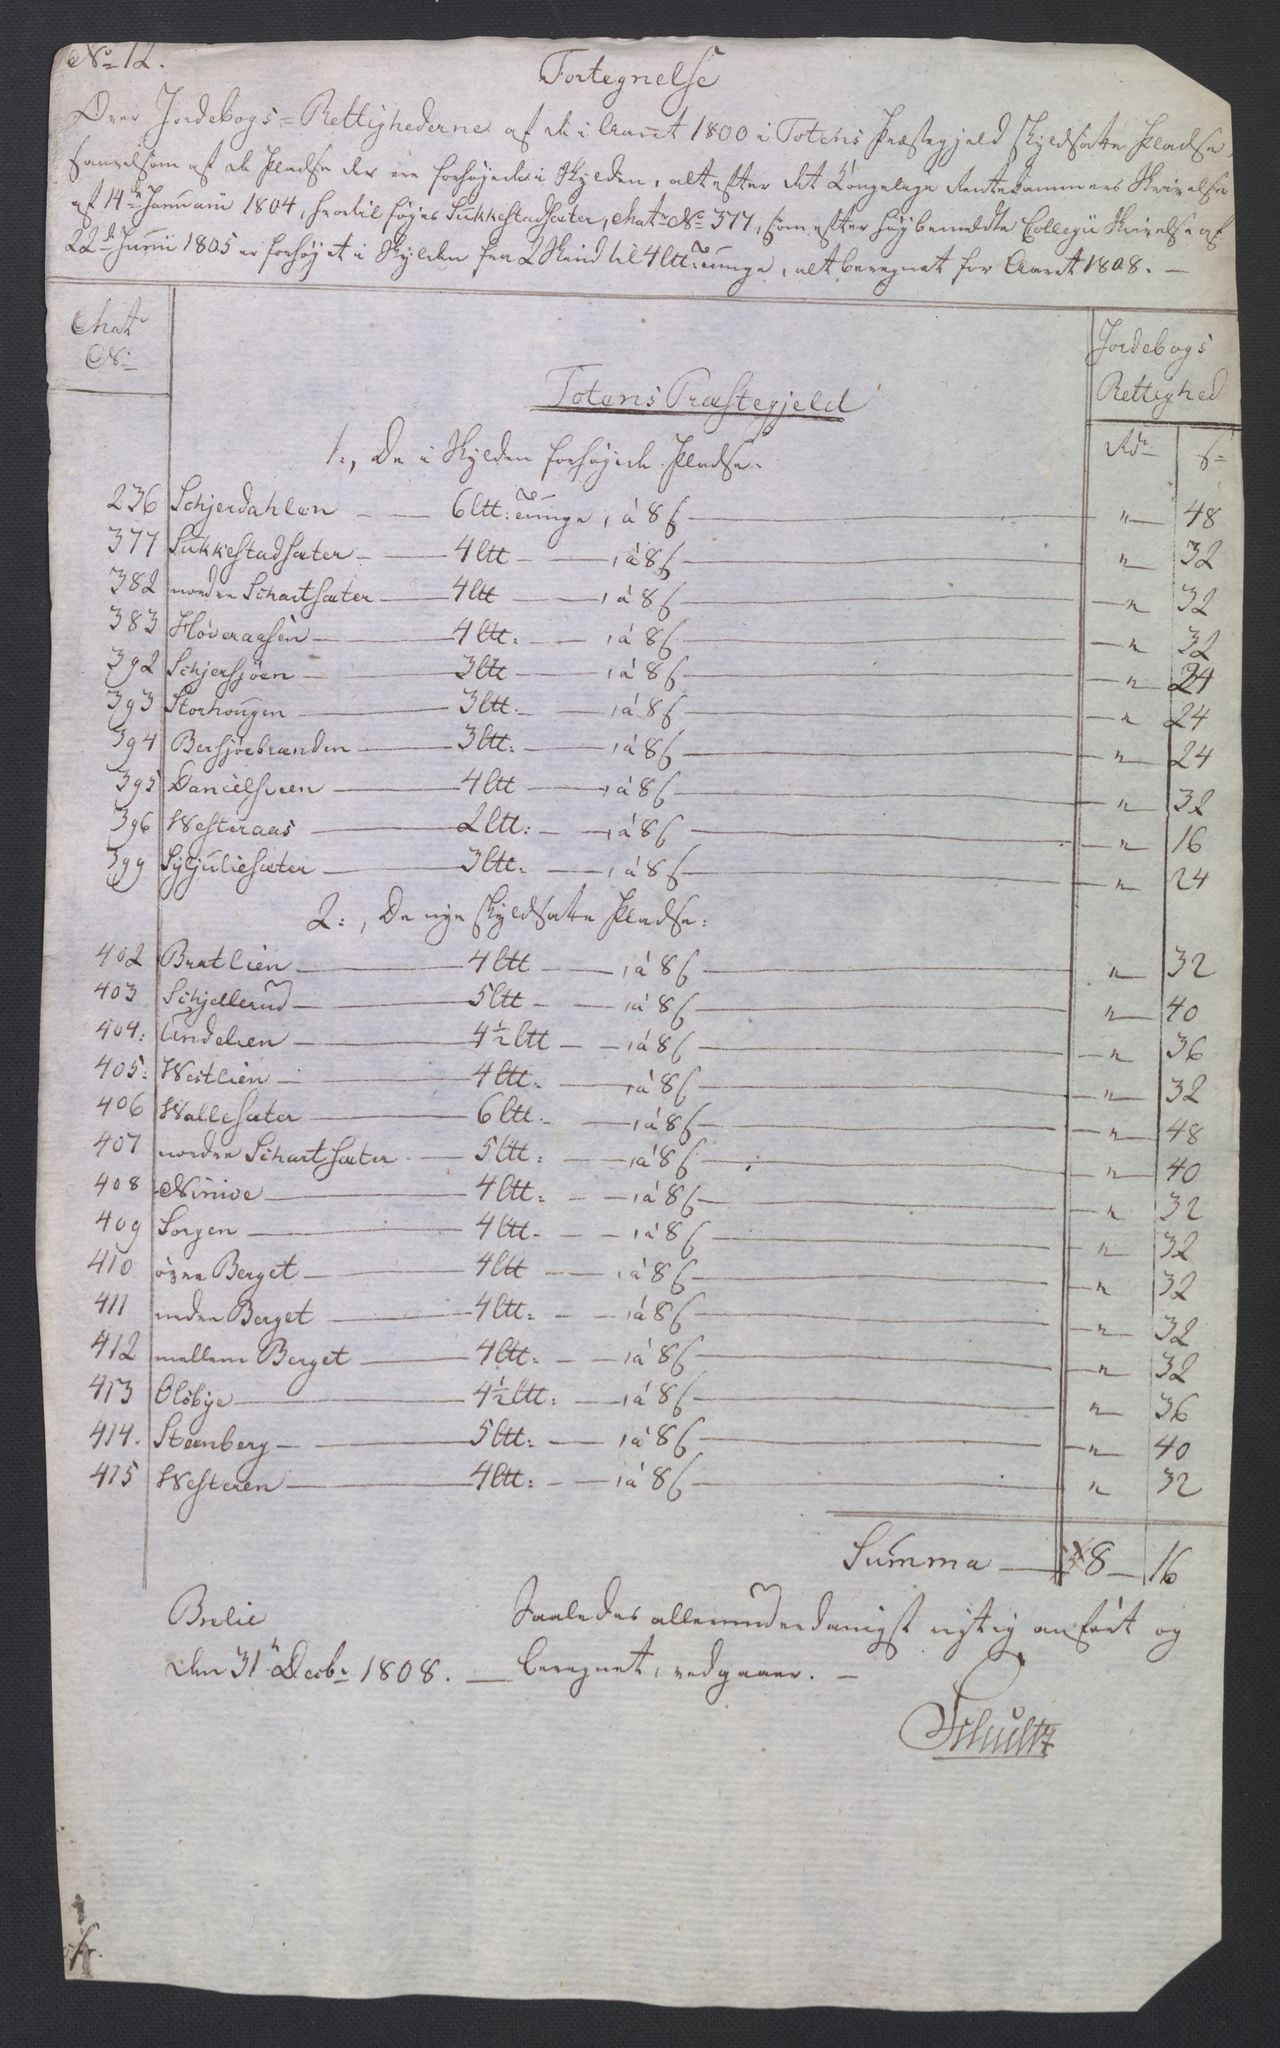 No 12.
Fortegnelse
Over Jordebogs-Rettighederne af de i Aaret 1800 i Totens Præstegjeld skyldsatte Pladse,
saavelsom af de Pladse der ere forhøyede i Skylden, alt efter det Kongelige Rentekammers Skrivelse
af 14de Januarii 1804, hvortil føyes Sukkestadsæter, Matr. No 377, som efter høybemeldte Collegii Skrivelse af
22de Junii 1805 er forhøyet i Skylden fra 2 Skind til 4 ltt: Tunge, alt beregnet for Aaret 1808. —
Matr No
Jordebogs Rettighed
Totens Præstegjeld
Rdr ß
1:, De i Skylden forhøyede Pladse:
236 Schjerdahlen — 6 ltt: Tunge, á 8 ß — " — 48
377 Sukkestadsæter — 4 ltt — , á 8 ß — " — 32
382 nordre Schartsæter — 4 ltt — , á 8 ß — " — 32
383 Høveraasen — 4 ltt: — , á 8 ß — " — 32
392 Schjersjøen — 3 ltt — , á 8 ß — " — 24
393 Storhougen — 3 ltt: — , á 8 ß — " — 24
394 Bersjøebrænden — 3 ltt: — , á 8 ß — " — 24
395 Danielsveen — 4 ltt — , á 8 ß — " — 32
396 Westeraas — 2 ltt: — , á 8 ß — " — 16
399 Syljuliesæter — 3 ltt: — , á 8 ß — " — 24
2:, De nye skyldsatte Pladse:
402 Bratlien — 4 ltt — , á 8 ß — " — 32
403 Schjellerud — 5 ltt — , á 8 ß — " — 40
404: Lindelien — 4 ½ ltt — , á 8 ß — " — 36
405: Westlien — 4 ltt: , á 8 ß — " — 32
406 Wallesæter — 6 ltt: — , á 8 ß — " — 48
407 nordre Schartsæter — 5 ltt: — , á 8 ß — " — 40
408 Ninive — 4 ltt: — , á 8 ß — " — 32
409 Sorgen — 4 ltt: — , á 8 ß — " — 32
410 øvre Berget — 4 ltt — , á 8 ß — " — 32
411 nedre Berget — 4 ltt: — , á 8 ß — " — 32
412 mellem Berget — 4 ltt: — , á 8 ß — " — 32
413 Olsbye — 4 ½ ltt: — , á 8 ß — " — 36
414. Steenberg — 5 ltt: — , á 8 ß — " — 40
415 Westeren — 4 ltt: — , á 8 ß — " — 32
Summa — 8 — 16
Brelie Saaledes allerunderdanigst rigtig anført og
den 31te Decbr 1808. — beregnet, vedgaaer. —
Schultz